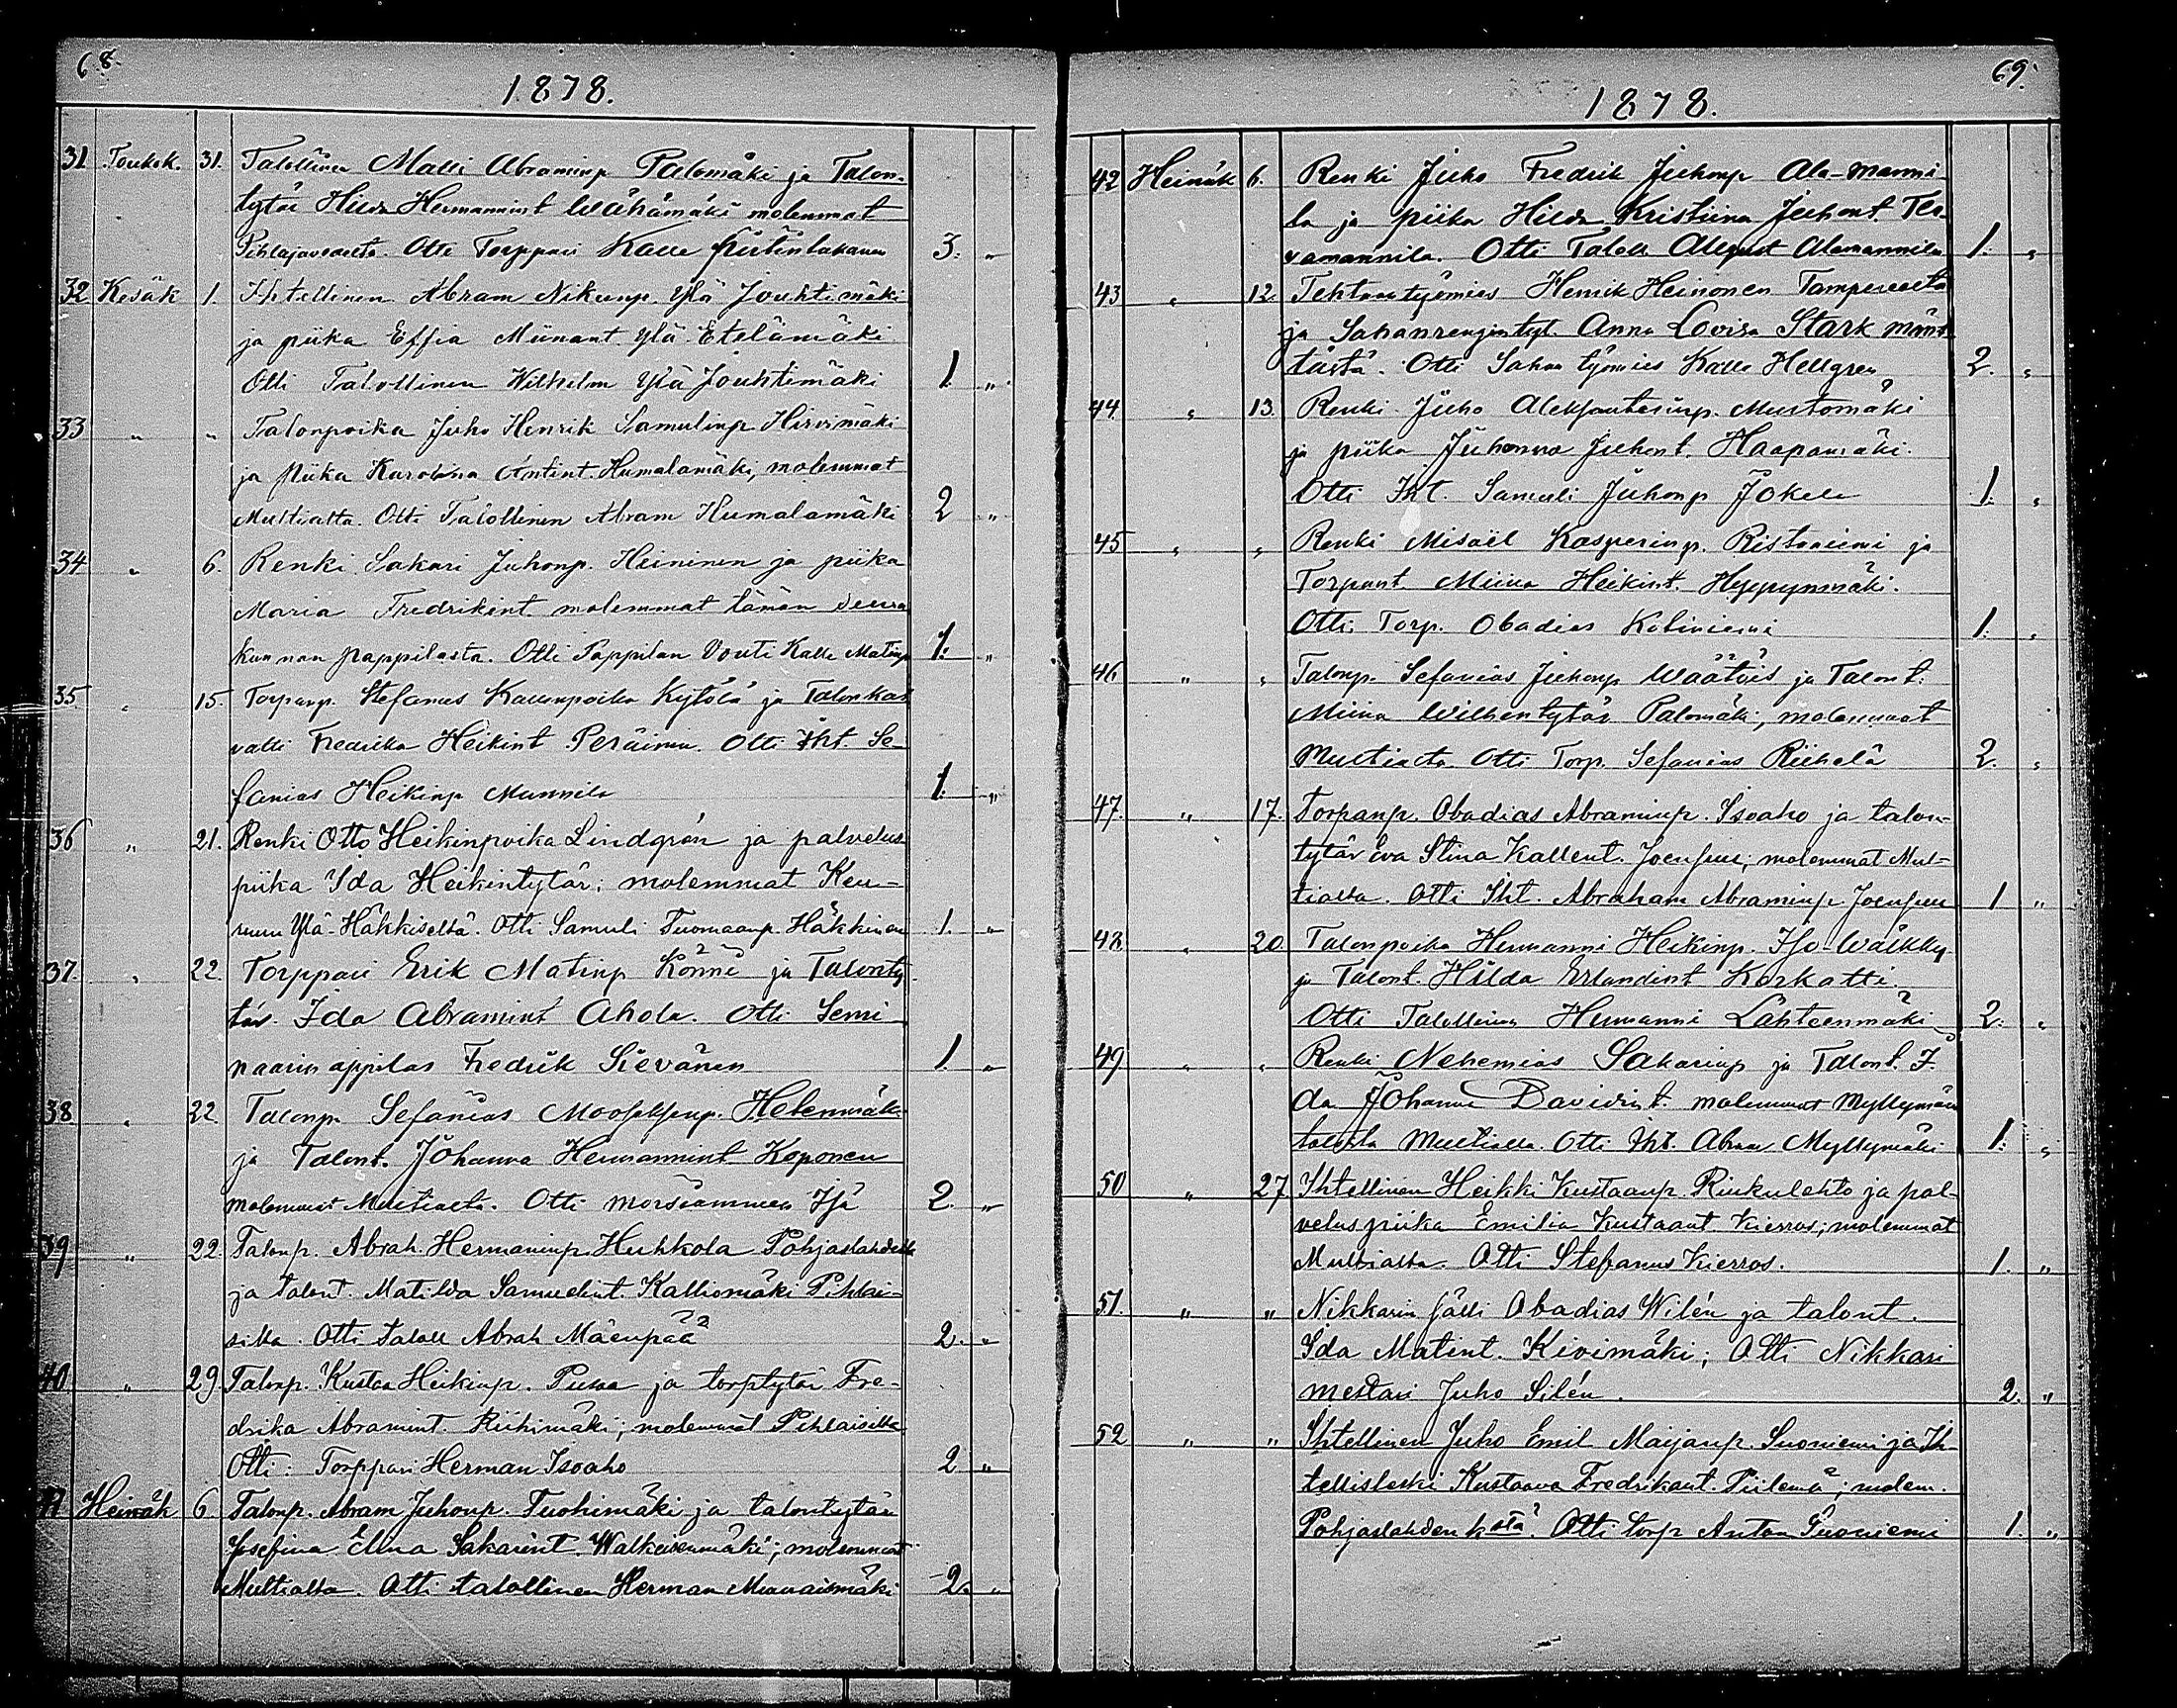 68.
1878.
31 Toukok. 31. Talollinen Matti Abraminp Palomäki ja Talon-
tytär Hilda Hermannint Wähämäki molemmat
Pihlajavedelta. Otti Torppari Kalle 3. "
32 Kesäk 1. Ihtellinen Abram Nikunp. Ylä Jouhtimäki
ja piika Effia Miinant. Ylä Etelämäki
Otti Talollinen Wilhelm Ylä Jouhtimäki 1. "
33 " " Talonpoika Juho Henrik Samulinp Hirvimäki
ja piika Karolina Antint. Humalamäki, molemmat
Multialta. Otti Talollinen Abram Humalamäki 2 "
34 " 6. Renki Sakari Juhonp. Heininen ja piika
Maria Fredrikint molemmat tämän seura
kunnan pappilasta. Otti Pappilan Vouti Kalle Matinp 1. "
35 " 15. Torpanp. Stefanus Kallenpoika Kytölä ja Talonkas
vatti Fredrika Heikint. Peräinen. Otti Iht. Se-
fanias Heikinp Mannila 1. "
36 " 21. Renki Otto Heikinpoika Lindgrén ja palvelus
piika Ida Heikintytär; molemmat Keu-
ruun Ylä-Häkkiseltä. Otti Samuli Tuomaanp. Häkkinen 1. "
37. " 22. Torppari Erik Matinp Könni ja Talonty
tär. Ida Abramint Ahola. Otti Semi-
naarin oppilas Fredrik Sievänen 1. "
38. " 22. Talonp. Sefanias Mooseksenp. Helenmäki
ja Talont. Johanna Hermannint Koponen
molemmat Multialta. Otti morsiammen Isä 2. "
39 " 22. Talonp. Abrah. Hermaninp. Huhkola Pohjaslahdelta
ja talont. Matilda Samuelint. Kalliomäki Pihlai-
silta. Otti taloll Abrah Mäenpää 2. "
40 " 29 Talonp. Kustaa Heikinp. Pusaa ja torptytär Fre-
drika Abramint. Riihimäki; molemmat Pihlaisilta
Otti: Torppari Herman Isoaho 2 "
41 Heinäk 6 Talonp. Abram Juhonp. Tuohimäki ja talontytär
Josefina Elina Sakarint. Walkeisenmäki; molemmat
Multialta. Otti talollinen Herman 2. "
69.
1878.
42 Heinäk 6. Renki Juho Fredrik Juhonp Ala-manni-
la ja piika Hilda Kristiina Juhont Ter
vamannila. Otti Taloll. August Alamannila 1. "
43 " 12. Tehtaan työmies Henrik Heinonen Tampereelta
ja Sahanrengintyt. Anna Lovisa Stark mänt
tästä. Otti Sahan työmies Kalle Hellgren 2. "
44 " 13. Renki Juho Aleksanterinp. Mustomäki
ja piika Juhanna Juhont. Haapamäki.
Otti Iht. Samuli Juhonp Jokela 1. "
45 " " Renki Misaël Kasperinp. Ristaniemi ja
Torpant. Miina Heikint. Heppynmäki.
Otti Torp. Obadias Kotiniemi 1. "
46 " " Talonp. Sefanias Juhonp Wäätäis ja Talont.
Miina Wilhentytär Palomäki, molemmat
Multialta. Otti Torp. Sefanias Riihelä 2. "
47. " 17. Torpanp. Obadias Abraminp. Isoaho ja talon-
tytär Eva Stina Kallent. Joensuu; molemmat Mul-
tialta. Otti Iht. Abraham Abraminp. Joensuu 1 "
48. " 20. Talonpoika Hermanni Heikinp. Iso-Wälkky
ja Talont. Hilda Erlandint Korkatti.
Otti Talollinen Hermanni Lähteenmäki 2. "
49 " " Renki Nehemias Sakarinp ja Talont. I-
da Johanna Davidint. molemmat Myllymäen
talosta Multialla. Otti Iht. Abram Myllymäki 1. "
50 " 27 Ihtellinen Heikki Kustaanp. Riukulehto ja pal-
velus piika Emilia Kustaant. Kierros; molemmat
Multialta. Otti Stefanus Kierros. 1. "
51. " " Nikkarin sälli Obadias Wilén ja talont.
Ida Matint. Kivimäki; Otti Nikkari
mestari Juho Silén. 2. "
52 " " Ihtellinen Juho Emil Maijanp. Suoniemi ja Ih
tellisleski Kustaava Fredrikant. Piilemä; molem.
Pohjaslahden kstä. Otti torp Anton Suoniemi 1. "